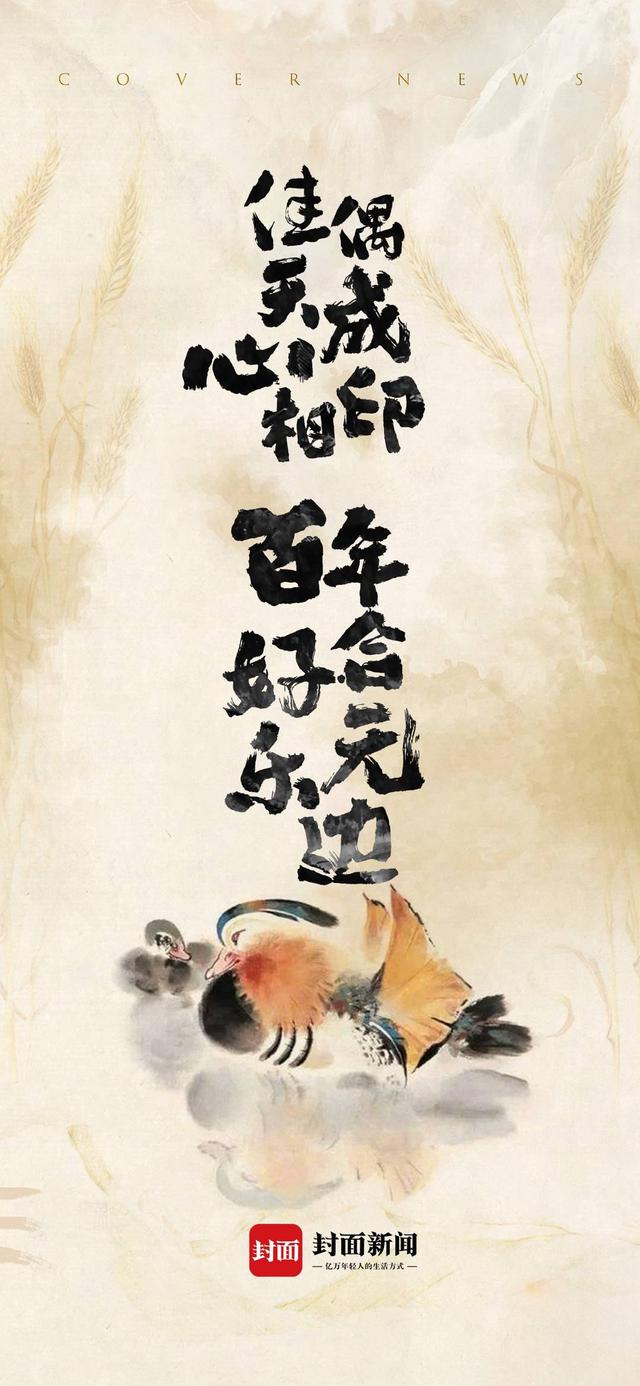 COVER NEWS
佳偶天成心相印
百年好合乐无边
封面
封面新闻
亿万年轻人的生活方式